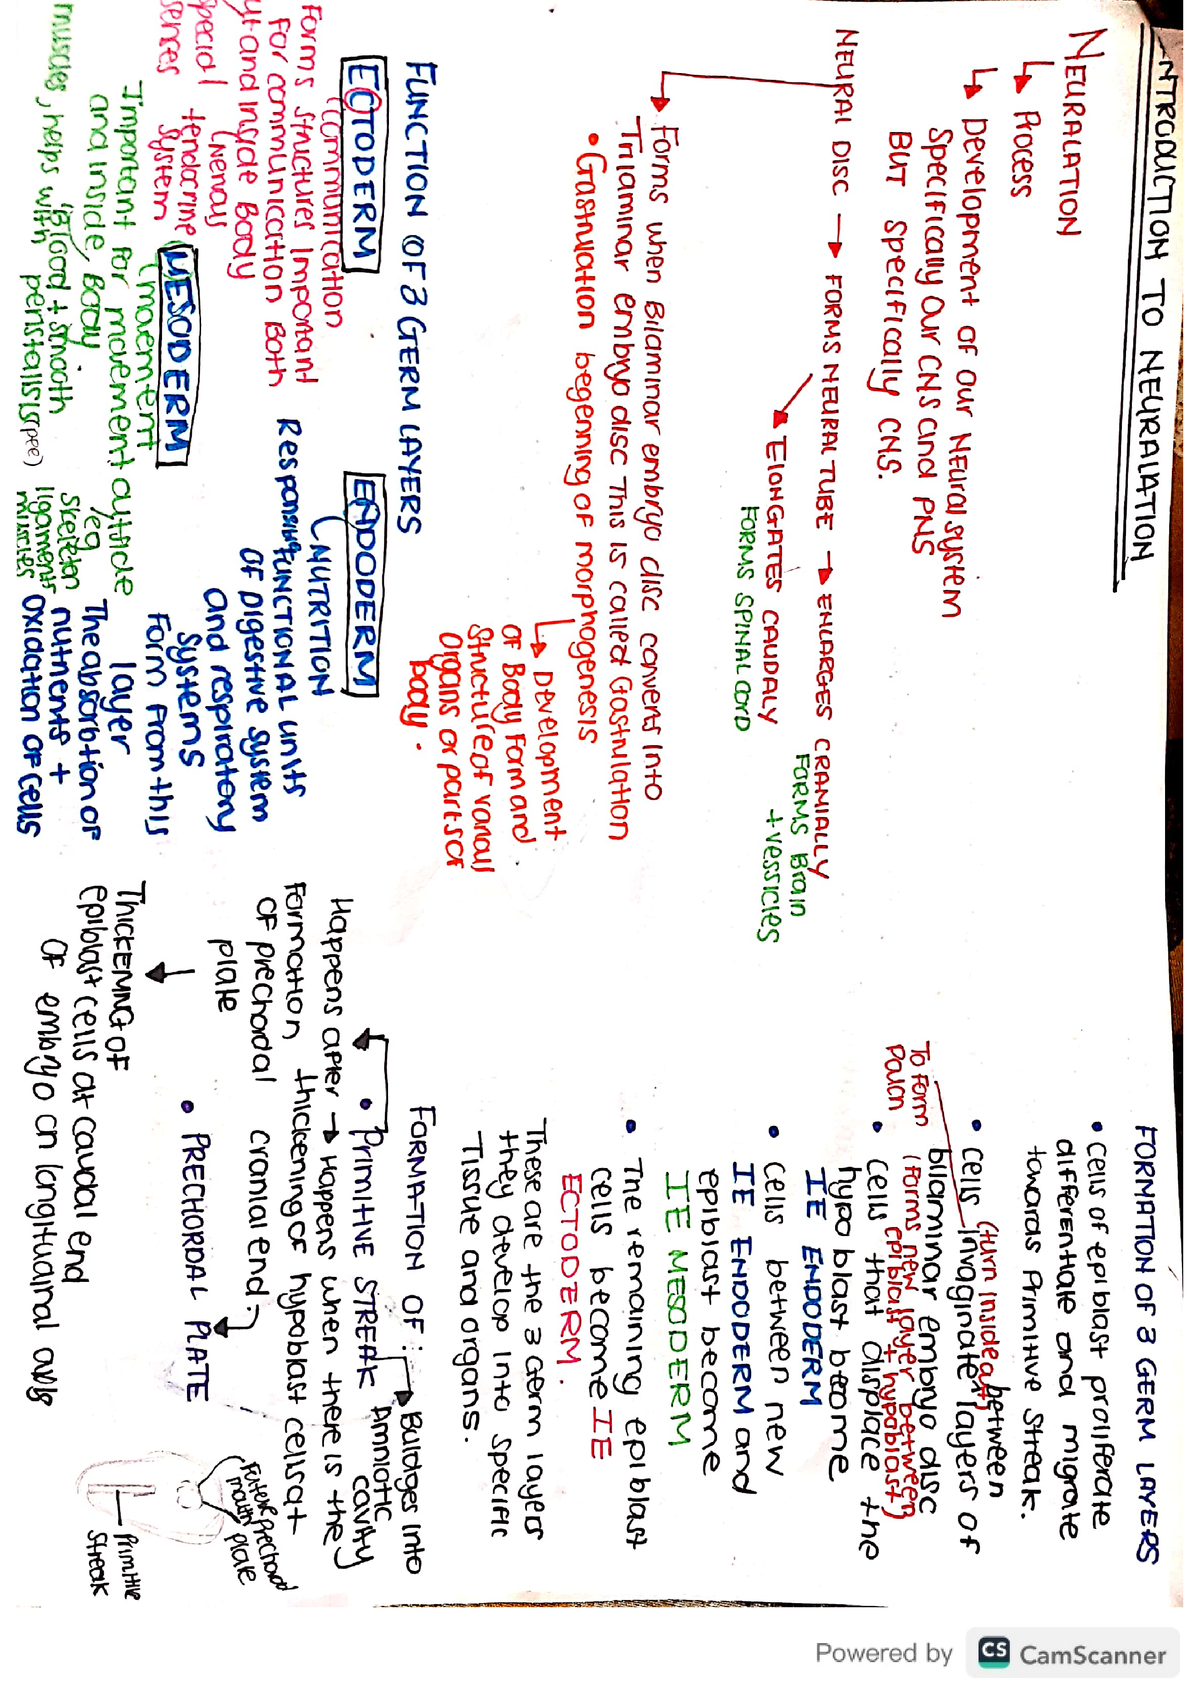 INTRODUCTION TO NEURALATION
NEURALATION
↳ Process
↳ Development of our Neural system
Specifically our CNS and PNS
BUT Specifically CNS.
NEURAL DISC → FORMS NEURAL TUBE → ENLARGES CRANIALLY
FORMS Brain
+ vessicles
ELONGATES CAUDALY
FORMS SPINAL CORD
Forms when Bilaminar embryo disc converts into
Trilaminar embryo disc This is called Gastrulation
• Gastrulation begenning of morphogenesis
↳ Development
of Body Form and
structure of variou
organs or parts of
body.
FUNCTION OF 3 GERM LAYERS
ECTODERM
(communication
Forms structures important
for communication both
and inside Body
(nervous
special + endocrine
sences system
MESODERM
(movement
Important for movement outside
and inside Body
Blood + smooth
muscles, helps with
peristalsis (pee)
eg
skeleton
ligaments
muscles
ENDODERM
(NUTRITION
Responsible FUNCTIONAL units
OF Digestive system
and respiratory
systems
Form from this
layer
The absorbtion of
nutrients +
oxidation of cells
FORMATION OF 3 GERM LAYERS
• cells of epiblast proliferate
differentiate and migrate
towards Primitive Streak.
(turn inside out) between
• cells invaginate layers of
bilaminar embryo disc
(forms new layer between
epiblast + hypoblast)
To form
• cells that displace the
hypoblast become
IE ENDODERM
• cells between new
IE ENDODERM and
epiblast become
IE MESODERM
• The remaining epiblast
cells become IE
ECTODERM.
These are the 3 Germ layers
they develop into specific
Tissue and organs.
FORMATION OF:
Buldges into
Amniotic
cavity
• PRIMITIVE STREAK
Happens after → Happens when there is the
Formation thickening of hypoblast cells at
OF prechordal cranial end.
plate
• PRECHORDAL PLATE
THICKENING OF
epiblast cells at caudal end
OF embryo on longitudinal axis
Future mouth
prechordal
plate
Primitive
streak
Powered by CS CamScanner